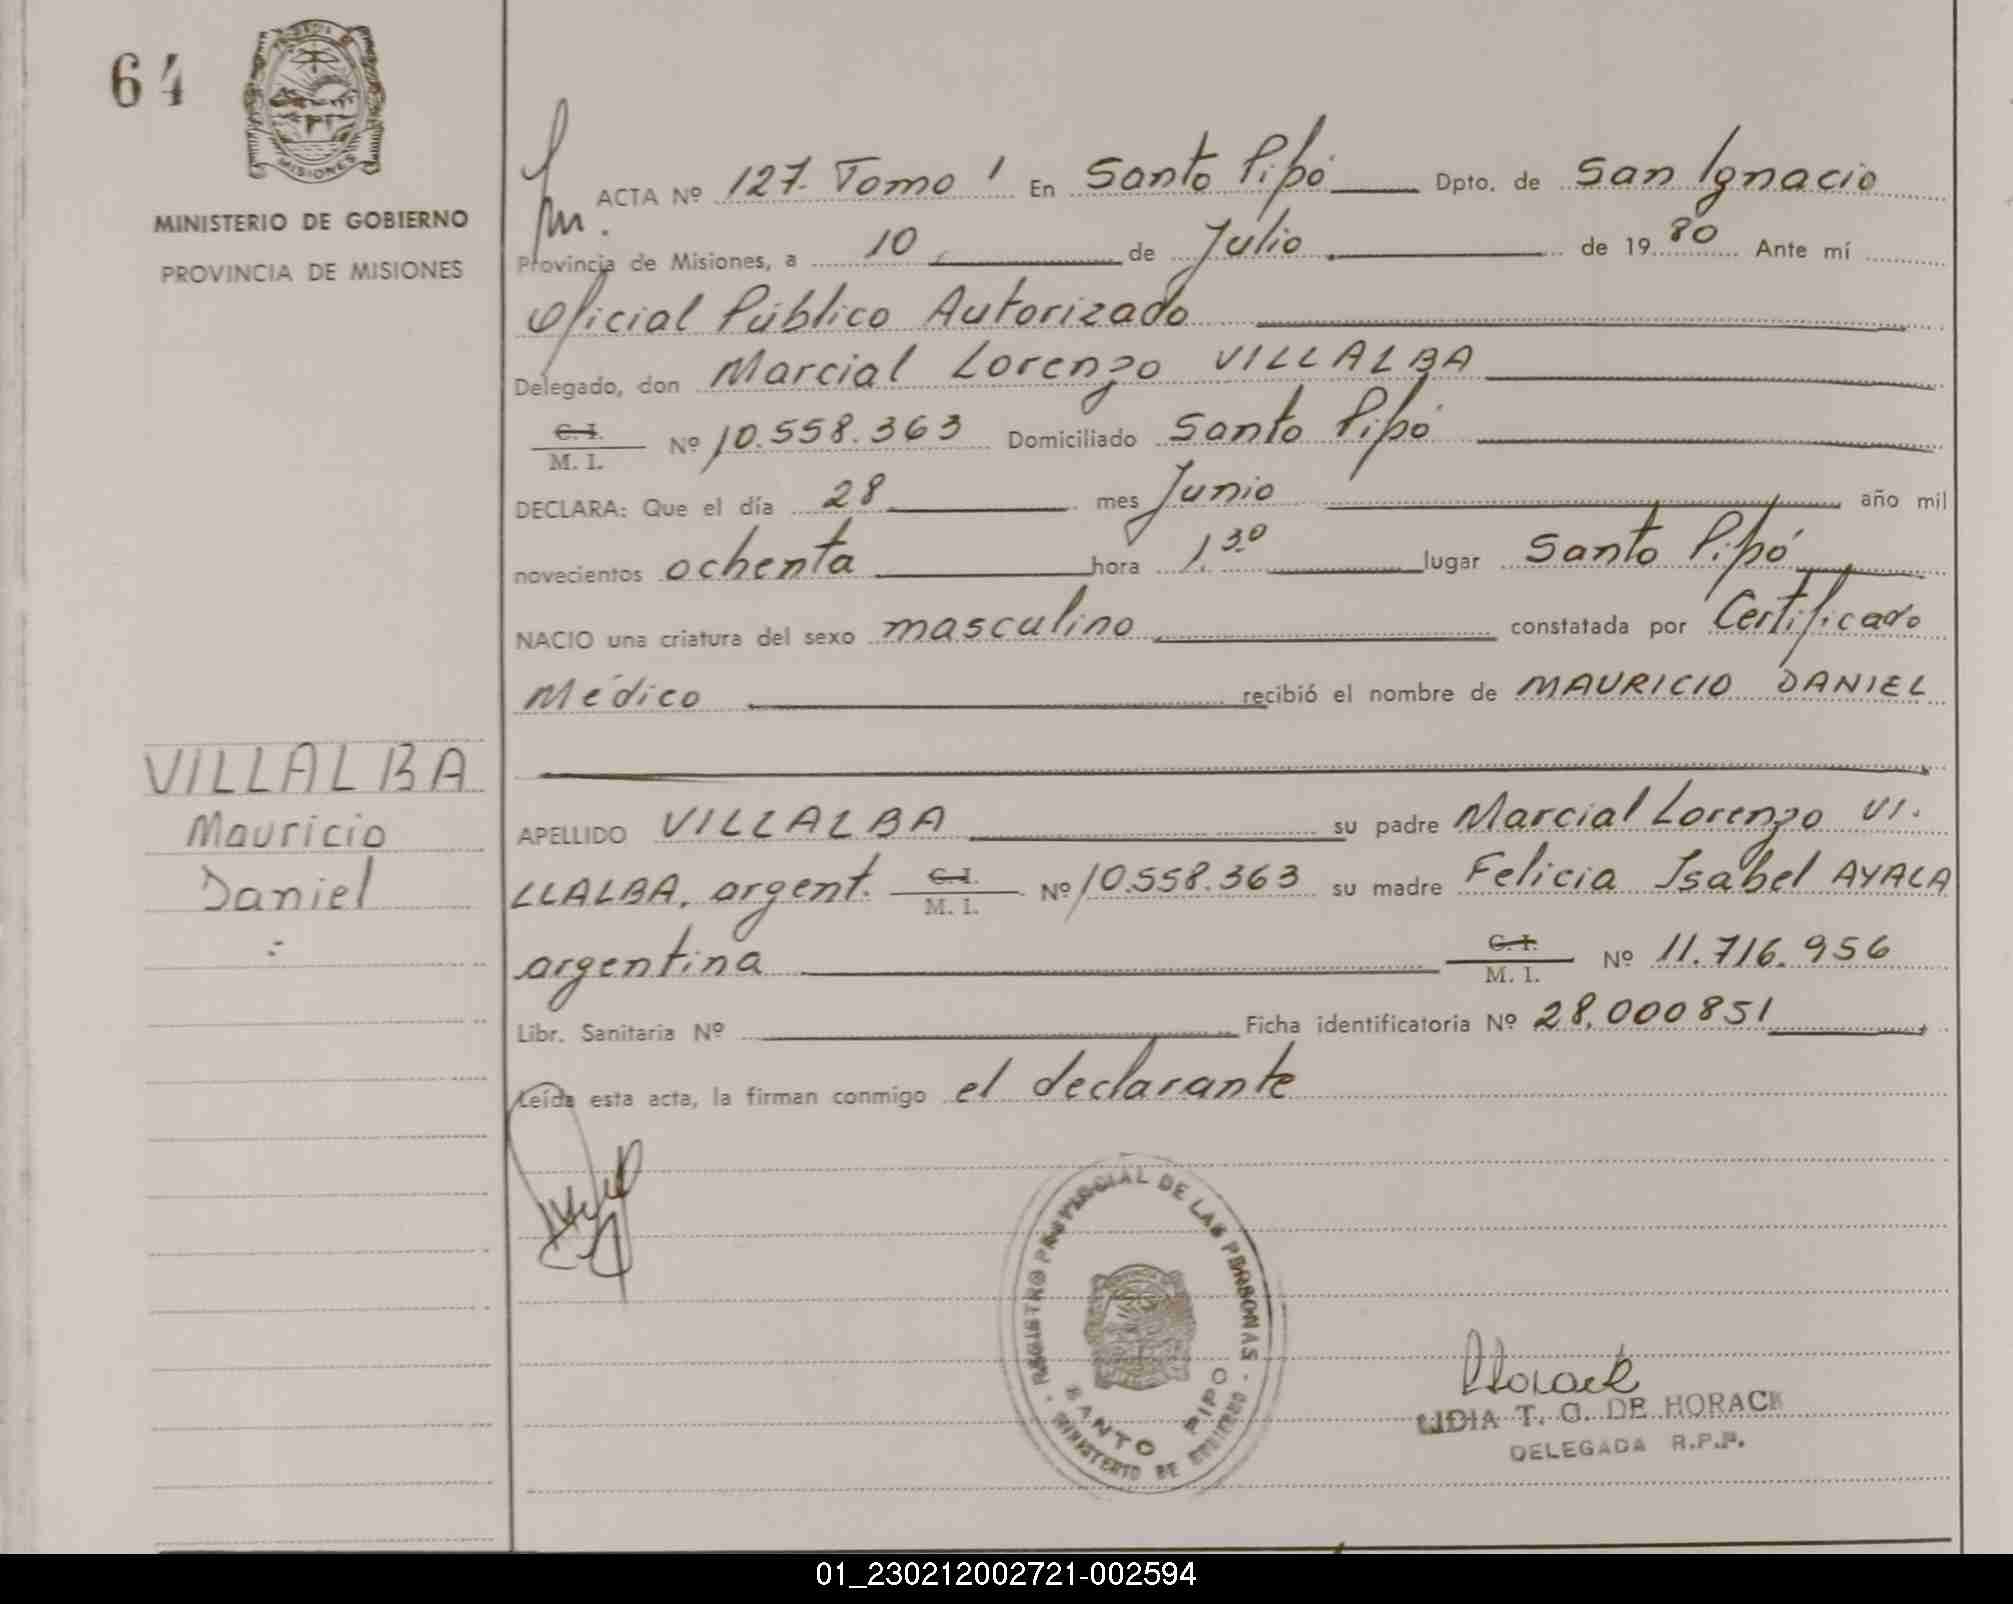 64
PROVINCIA
MISIONES
MINISTERIO DE GOBIERNO
PROVINCIA DE MISIONES
VILLALBA
Mauricio
Daniel
ACTA Nº 127. Tomo 1 En Santo Pipó Dpto. de San Ignacio
Provincia de Misiones, a 10 de Julio de 1980 Ante mí
Oficial Público Autorizado
Delegado, don Marcial Lorenzo VILLALBA
C. I.
M. I. Nº 10.558.363 Domiciliado Santo Pipó
DECLARA: Que el día 28 mes Junio año mil
novecientos ochenta hora 1.30 lugar Santo Pipó
NACIO una criatura del sexo masculino constatada por Certificado
Médico recibió el nombre de MAURICIO DANIEL
APELLIDO VILLALBA su padre Marcial Lorenzo VI.
LLALBA, argent. C. I.
M. I. Nº 10.558.363 su madre Felicia Isabel AYALA
argentina C. I.
M. I. Nº 11.716.956
Libr. Sanitaria Nº Ficha identificatoria Nº 28.000851
Leída esta acta, la firman conmigo el declarante
REGISTRO PROVINCIAL DE LAS PERSONAS
SANTO PIPO
MINISTERIO DE GOBIERNO
Horack
LIDIA T. G. DE HORACK
DELEGADA R.P.P.
01_230212002721-002594